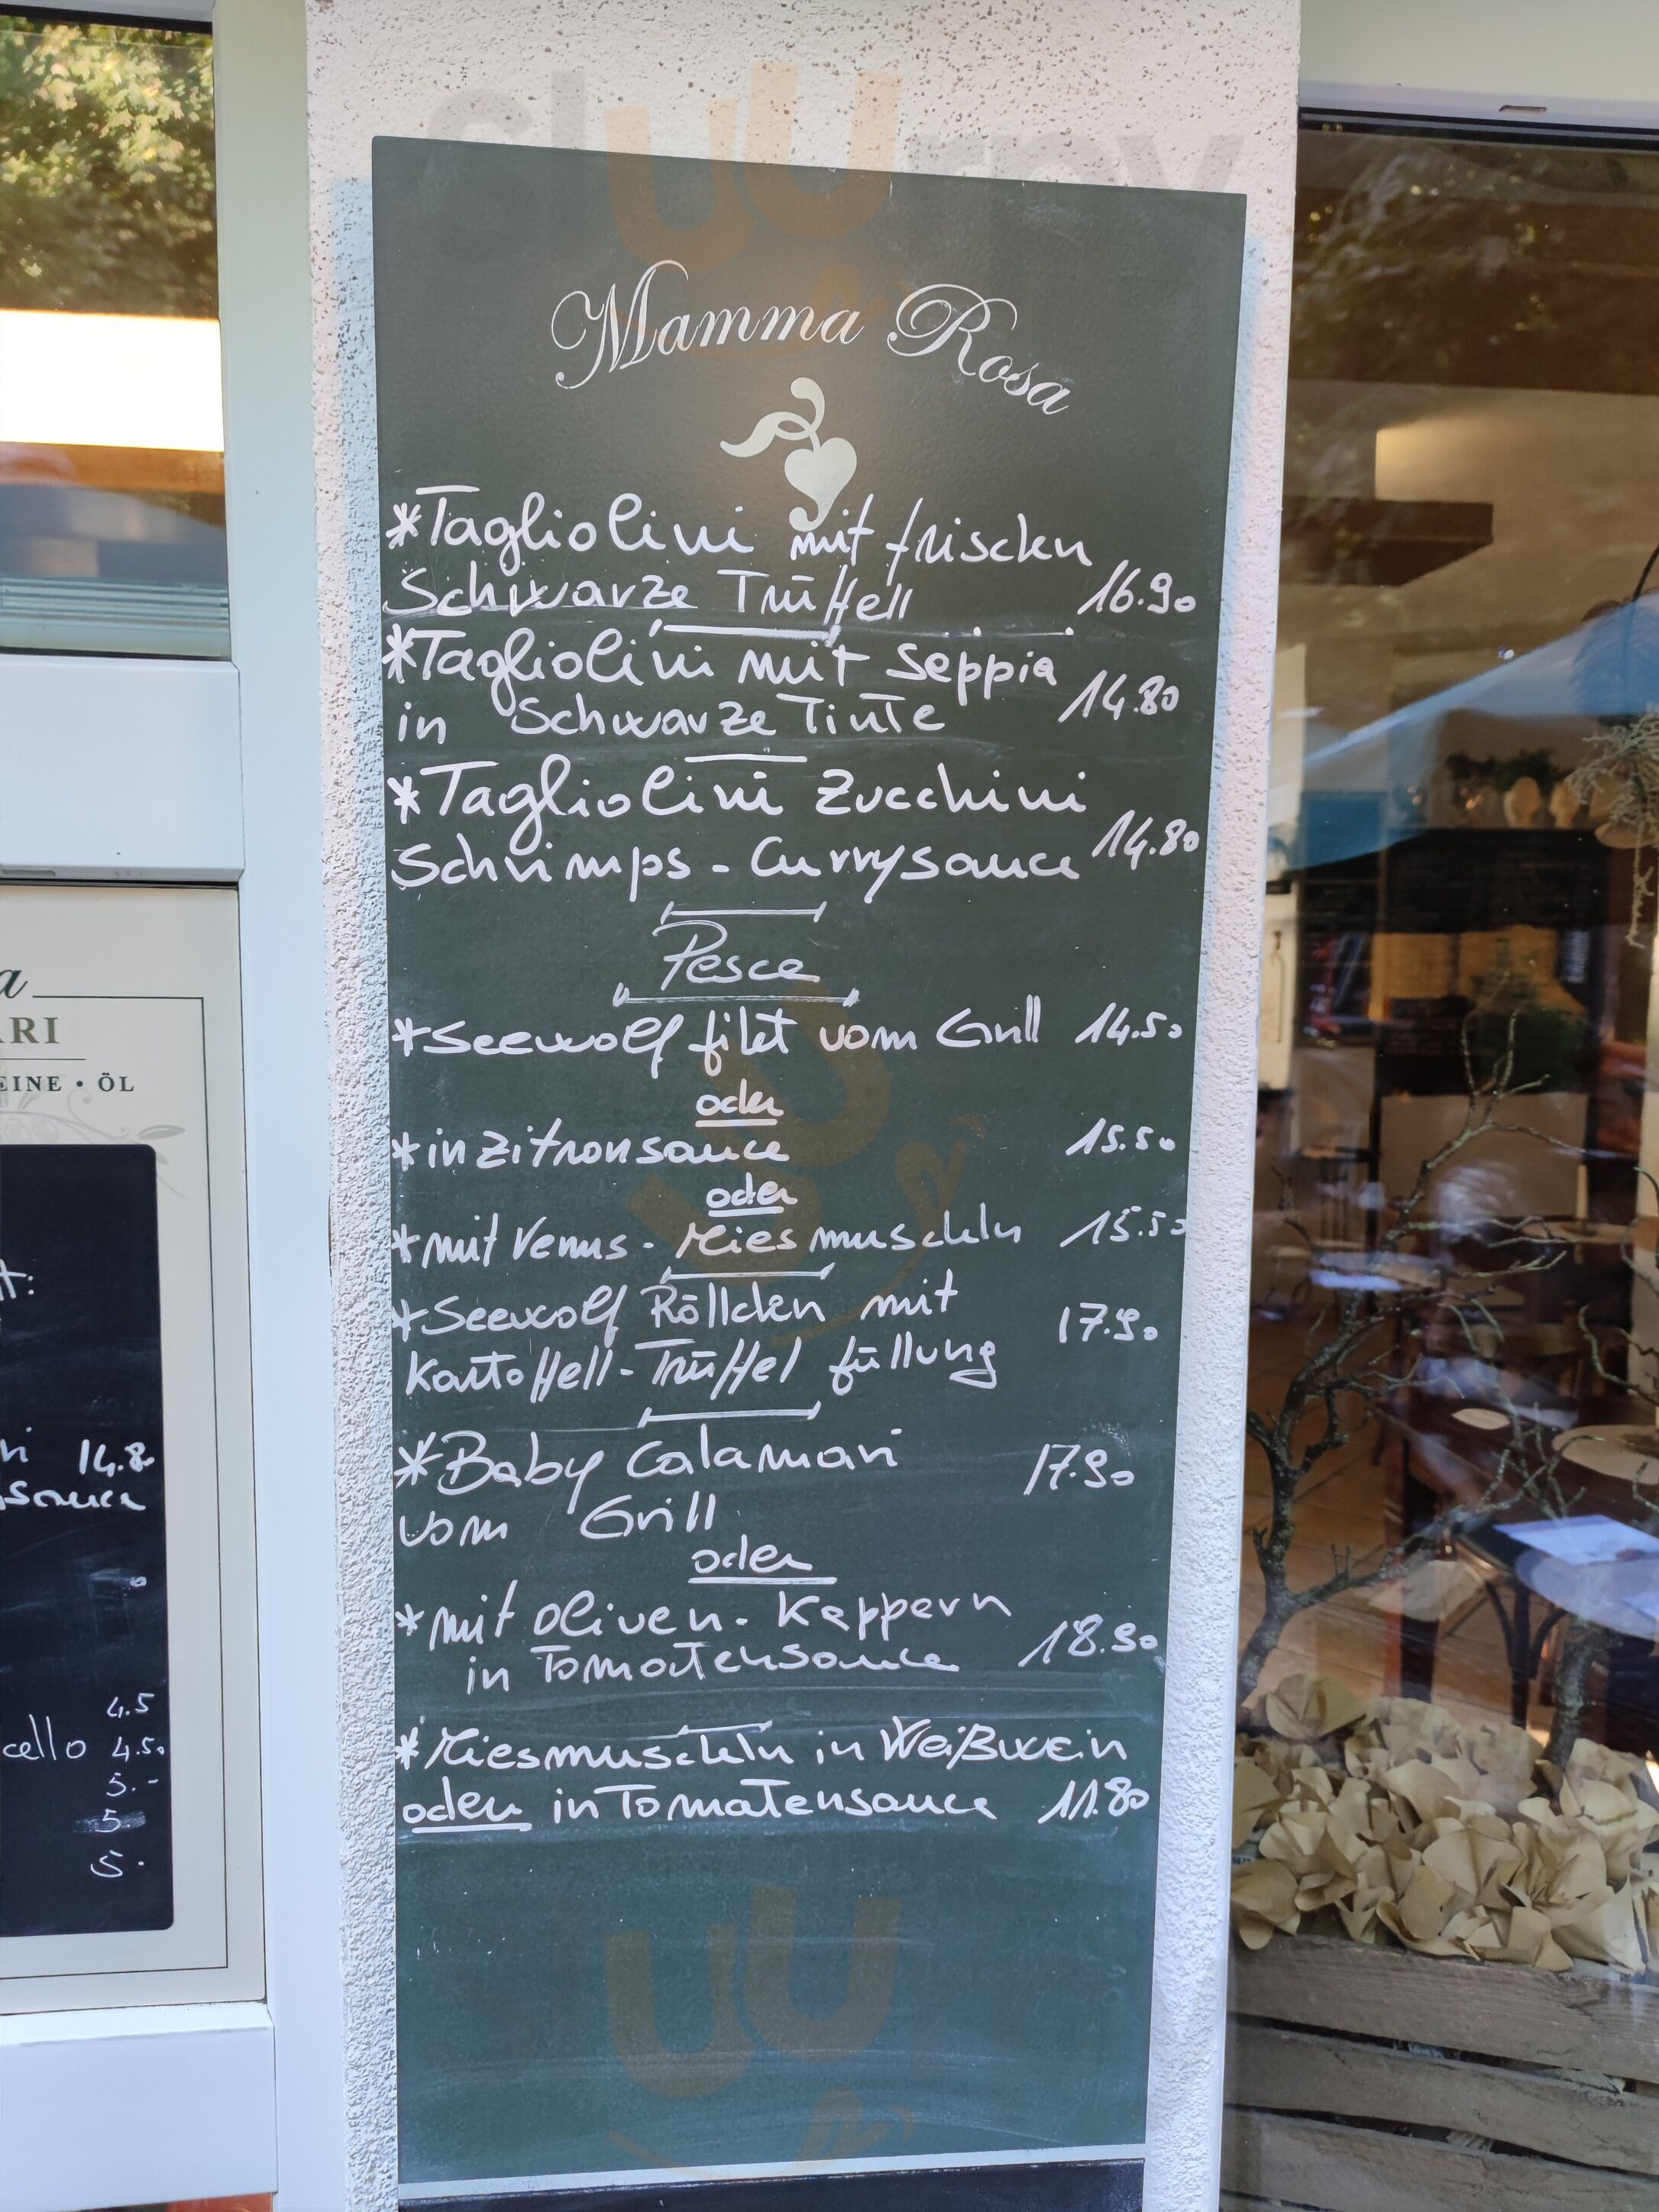 slurpy
Mamma Rosa
*Tagliolini mit frischen
Schwarze Trüffell 16.90
*Tagliolini mit Seppia
in Schwarze Tinte 14.80
*Tagliolini Zucchini
Schrimps - Currysauce 14.80
Pesce
*Seewolf filet vom Grill 14.50
oder
*in Zitronsauce 15.50
oder
*mit Venus - Miesmuscheln 15.50
*Seewolf Röllchen mit
Kartoffell - Trüffel füllung 17.90
*Baby Calamari 17.90
vom Grill
oder
*mit Oliven - Kappern
in Tomatensauce 18.90
*Miesmuscheln in Weißwein
oder in Tomatensauce 11.80
a
ARI
EINE • ÖL
t:
ni 14.80
sauce
4.5
cello 4.50
5.-
5
5.